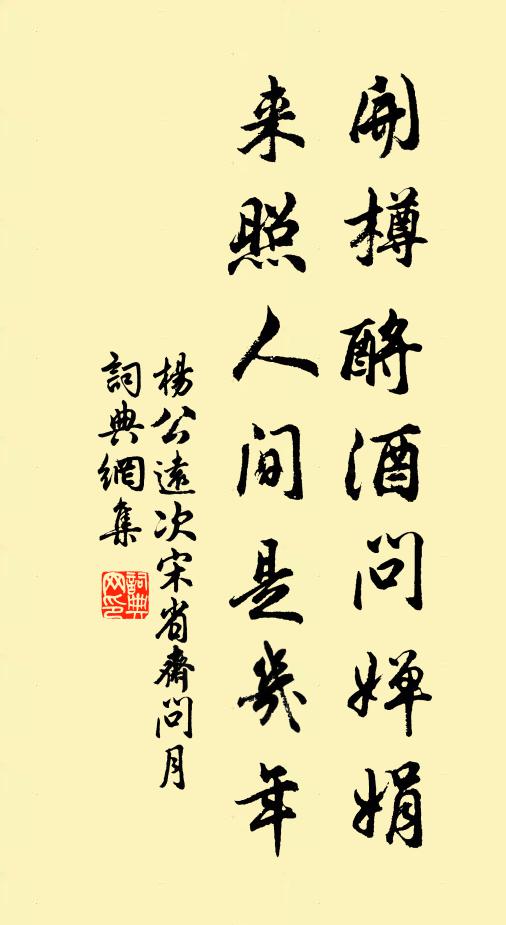 開樽酹酒問嬋娟
来照人间是幾年
楊公遠次宋省齋問月
詞典網集
詞典网印